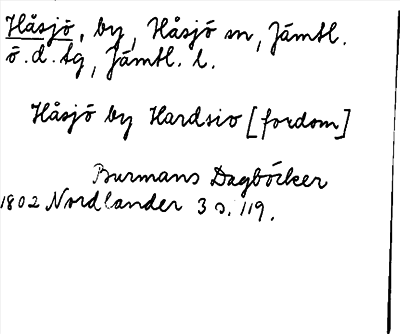 Håsjö, by, Håsjö sn, Jämtl.
ö.d.tg, Jämtl. l.
Håsjö by Hardsio [fordom]
Burmans Dagböcker
1802 Nordlander 3 s. 119.